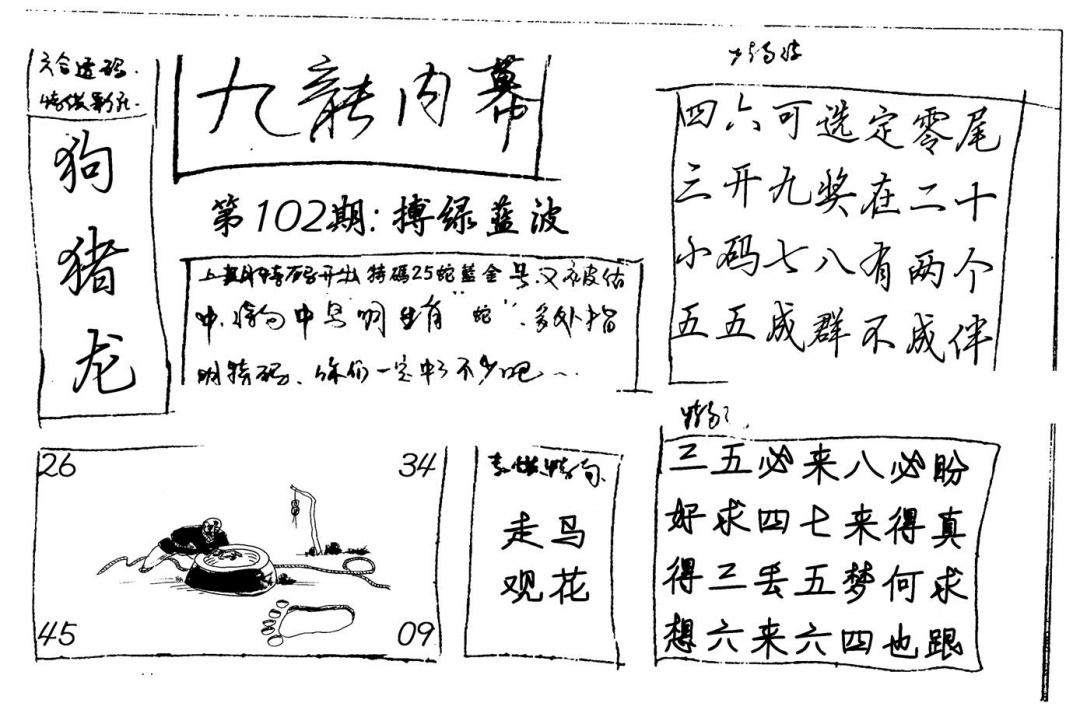 六合透码.
狗
猪
龙
九龍内幕
第102期:搏绿蓝波
上期特码开出特碼25蛇蓝金号又被估
中.特句中鸟明生肖“蛇”.多处指
明特码.你们一定中了不少吧…
四六可选定零尾
三开九奖在二十
小码七八有两个
五五成群不成伴
26
34
45
09
走马
观花
三五必来八必盼
好求四七来得真
得三丢五梦何求
想六来六四也跟